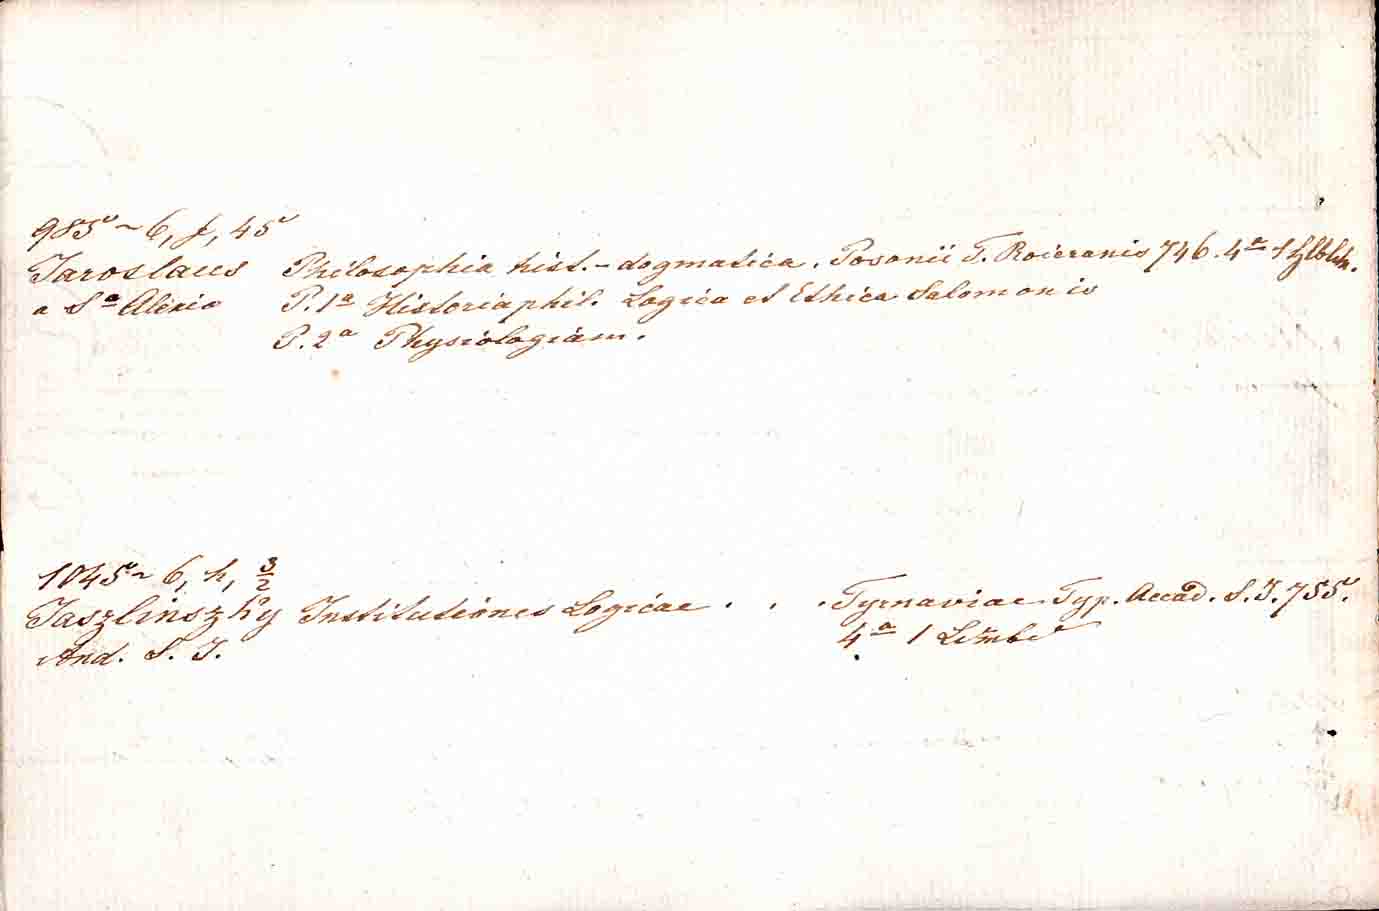 985 ~ 6, f, 45
Jaroslaus Philosophia hist. - dogmatica. Posonii T. Roieranis 746. 4ª 1
a Sª Alexio P. 1ª Historia phil. Logica et Ethica Salomonis
P. 2ª Physiologiam.
1045 ~ 6, h, 3/2
Jaszlinszky Institutiones Logicae . . . Tyrnaviae Typ. Accad. S. J. 755.
And. S. J. 4ª 1